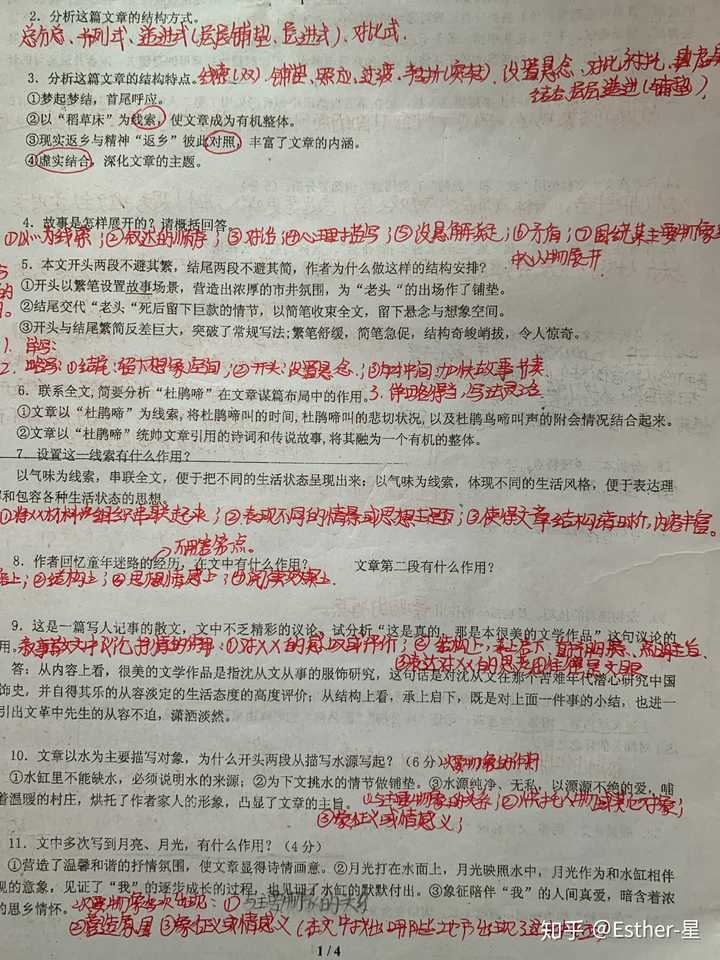 2. 分析这篇文章的结构方式。
总分总、并列式、递进式(层层铺垫、层进式)、对比式
3. 分析这篇文章的结构特点。线索(双)、铺垫、照应、过渡、设置悬念、对比衬托、
结合 层层递进(铺垫)
①梦起梦结,首尾呼应。
②以“稻草床”为线索,使文章成为有机整体。
③现实返乡与精神“返乡”彼此对照,丰富了文章的内涵。
④虚实结合,深化文章的主题。
4. 故事是怎样展开的?请概括回答。
①以…为线索;②叙述的顺序;③对话④心理描写;⑤设悬解疑;⑥矛盾;⑦围绕某主要物像
中心物展开
5. 本文开头两段不避其繁,结尾两段不避其简,作者为什么做这样的结构安排?
①开头以繁笔设置故事场景,营造出浓厚的市井氛围,为“老头“的出场作了铺垫。
②结尾交代“老头“死后留下巨款的情节,以简笔收束全文,留下悬念与想象空间。
③开头与结尾繁简反差巨大,突破了常规写法;繁笔舒缓,简笔急促,结构奇峻峭拔,令人惊奇。
1. 详写:
2. 略写:①结尾:留下想象空间;②开头:设置悬念;③中间:加快故事节奏
6. 联系全文,简要分析“杜鹃啼”在文章谋篇布局中的作用。3. 详略得当,写法灵活
①文章以“杜鹃啼”为线索,将杜鹃啼叫的时间,杜鹃啼叫的悲切状况,以及杜鹃鸟啼叫声的附会情况结合起来。
②文章以“杜鹃啼”统帅文章引用的诗词和传说故事,将其融为一个有机的整体。
7. 设置这一线索有什么作用?
以气味为线索,串联全文,便于把不同的生活状态呈现出来;以气味为线索,体现不同的生活风格,便于表达理
和包容各种生活状态的思想。
①将XX材料组织串联起来;②表现不同的情景或思想主题;③使得文章结构清晰,内容丰富。
不用答考点。
8. 作者回忆童年迷路的经历,在文中有什么作用? 文章第二段有什么作用?
上;②结构上;③思想情感上;④阅读效果上
9. 这是一篇写人记事的散文,文中不乏精彩的议论。试分析“这是真的,那是本很美的文学作品”这句议论的
用。叙事散文中议论抒情的作用:①对XX的意义或评价;②结构上,承上启下、首尾呼应、点明主旨
③表达对XX的思考
答:从内容上看,很美的文学作品是指沈从文从事的服饰研究,这句话是对沈从文在那个苦难年代潜心研究中国
饰史,并自得其乐的从容淡定的生活态度的高度评价;从结构上看,承上启下,既是对上面一件事的小结,也进一
引出文革中先生的从容不迫,潇洒淡然。
10. 文章以水为主要描写对象,为什么开头两段从描写水源写起?(6 分)次要物象的作用
①水缸里不能缺水,必须说明水的来源;②为下文挑水的情节做铺垫。③水源纯净、无私,以源源不绝的爱,哺
着温暖的村庄,烘托了作者家人的形象,凸显了文章的主旨。①与主要物象的关系;②烘托人物或其它对象;
③象征义或情感义;
11. 文中多次写到月亮、月光,有什么作用?(4 分)
①营造了温馨和谐的抒情氛围,使文章显得诗情画意。②月光打在水面上,月光映照水中,月光作为和水缸相伴
现的意象,见证了“我”的逐步成长的过程,也见证了水缸的默默付出。③象征陪伴“我”的人间真爱,暗含着浓
的思乡情怀。次要物象多次出现:①与主要物象的关系
②营造氛围 ③象征义或情感义(在文中找出哪些地方出现了
1 / 4
知乎 @Esther-星